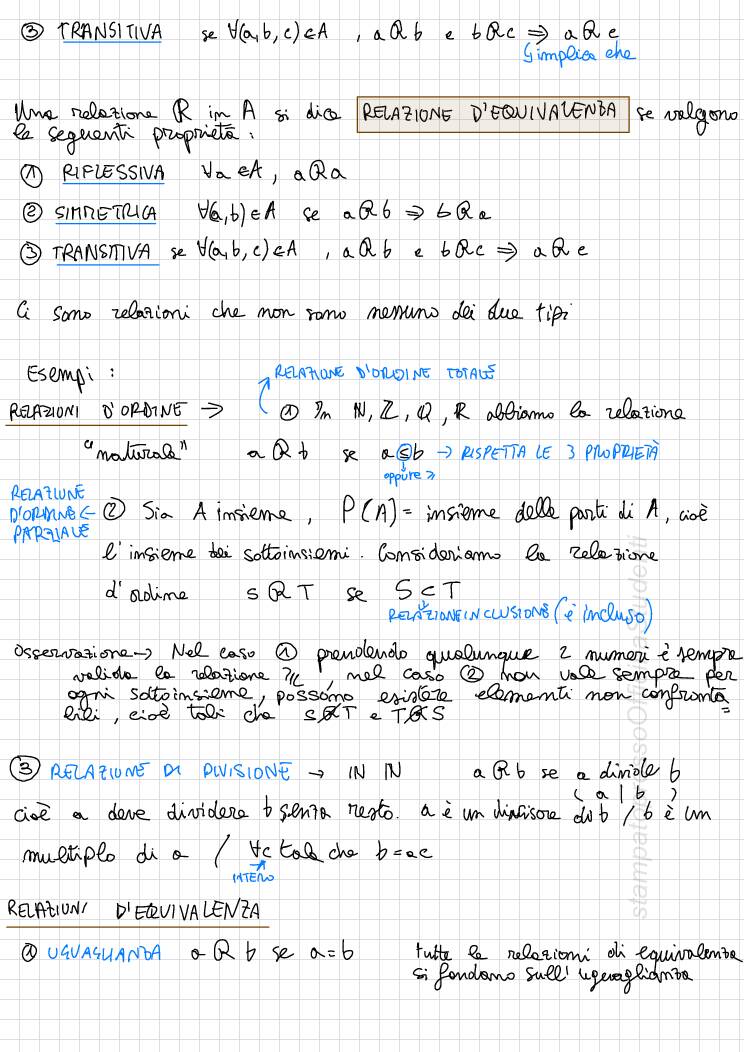 ③ TRANSITIVA se ∀(a,b,c)∈A , aRb e bRc ⇒ aRc
↳ implica che
Una relazione R in A si dice RELAZIONE D'EQUIVALENZA se valgono
le seguenti proprietà :
① RIFLESSIVA ∀a∈A, aRa
② SIMMETRICA ∀(a,b)∈A se aRb ⇒ bRa
③ TRANSITIVA se ∀(a,b,c)∈A , aRb e bRc ⇒ aRc
Ci sono relazioni che non sono nessuno dei due tipi
Esempi :
RELAZIONE D'ORDINE TOTALE
RELAZIONI D'ORDINE → ① In N, Z, Q, R abbiamo la relazione
"naturale" aRb se a≤b → RISPETTA LE 3 PROPRIETÀ
oppure ≥
RELAZIONE
D'ORDINE ←
PARZIALE
② Sia A insieme, P(A) = insieme delle parti di A, cioè
l'insieme dei sottoinsiemi. Consideriamo la relazione
d'ordine SRT se S⊂T
RELAZIONE INCLUSIONE (è incluso)
Osservazione → Nel caso ① prendendo qualunque 2 numeri è sempre
valida la relazione , nel caso ② non vale sempre per
ogni sottoinsieme, possono esistere elementi non confronta
bili, cioè tali che S​R̸T e TR̸S
③ RELAZIONE DI DIVISIONE → IN N aRb se a divide b
( a | b )
cioè a deve dividere b senza resto. a è un divisore di b / b è un
multiplo di a / ∀c tale che b=ac
INTERO
RELAZIONI D'EQUIVALENZA
① UGUAGLIANZA aRb se a=b tutte le relazioni di equivalenza
si fondano sull'uguaglianza